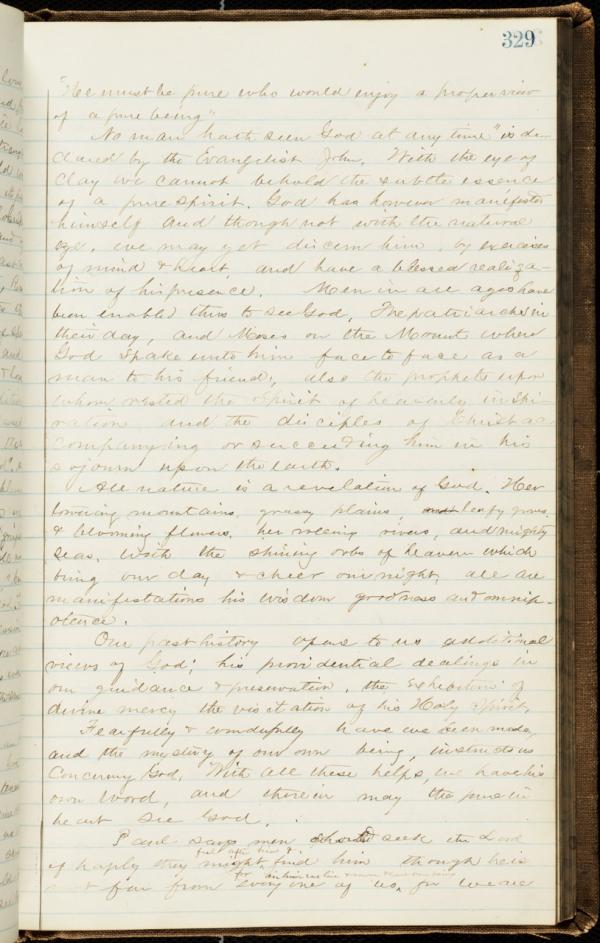 329
"He must be pure who would enjoy a proper view
of a pure being"
No man hath seen God at any time" is de-
clared by the Evangelist John. With the eye of
clay we cannot behold the subtle essence
of a pure spirit. God has however manifested
himself and though not with the natural
eye, we may yet discern him, by exercises
of mind & heart, and have a blessed realiza-
tion of his presence. Men in all ages have
been enabled thus to see God, The patriarchs in
their day, and Moses on the Mount where
God spake unto him face to face as a
man to his friend, also the prophets upon
whom rested the Spirit of heavenly inspi-
ration and the disciples of Christ ac-
companying or succeeding him in his
sojourn upon the earth.
All nature is a revelation of God. Her
towering mountains, grassy plains, leafy groves
& blooming flowers, her rolling rivers, and mighty
seas. With the shining orbs of heaven which
bring our day & cheer our night, all are
manifestations his wisdom goodness and omnip-
otence.
Our past history opens to us additional
views of God; his providential dealings in
our guidance & preservation, the exhibition of
divine mercy the visitation of his Holy Spirit,
Fearfully & wondufully have we been made,
and the mystery of our own being, instructs us
concerning God. With all these helps, we have his
own Word, and therein may the pure in
heart see God.
Paul says men should seek the Lord
feel after him &
if haply they might find him though he is
for in him we live & move & have our being
not far from every one of us, for we are